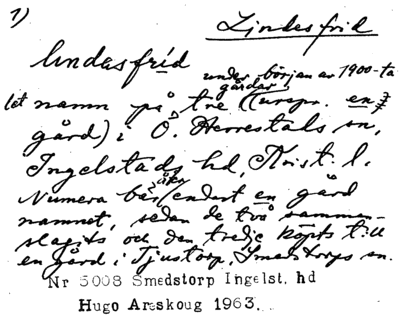 1)
Lindesfrid
lindesfrid
under början av 1900-ta
let namn på tre gårdar (urspr. en
gård) i Ö. Herrestads sn,
Ingelstads hd, Krist. l.
Numera bär också endast en gård
namnet, sedan de två samman-
slagits och den tredje köpts till
en gård i Tjustorp, Smedstorps sn.
Nr 5008 Smedstorp Ingelst. hd
Hugo Areskoug 1963.